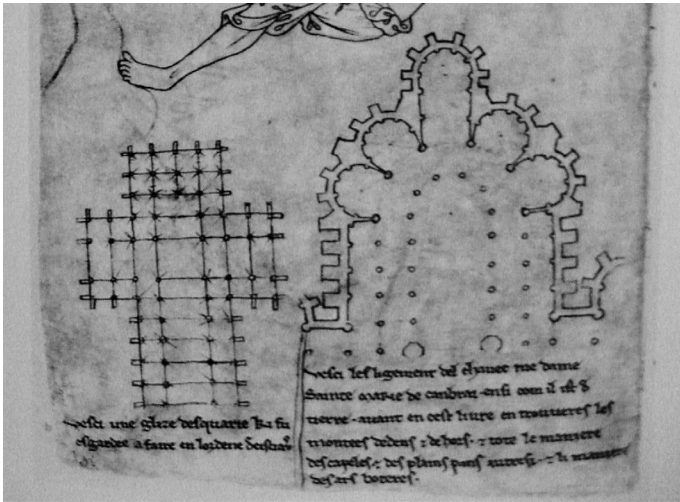 vesci une glize desquarie ki fu
esgardee a faire en lordene de cistiaus
vesci lesligement del chavec me dame
Sainte marie de canbrai ensi com il ist de
tierre. avant en cest livre en trouveres les
montees dedens ⁊ de hors. ⁊ tote le maniere
des capeles. ⁊ des plains pans autresi. ⁊ li maniere
des ars boteres.